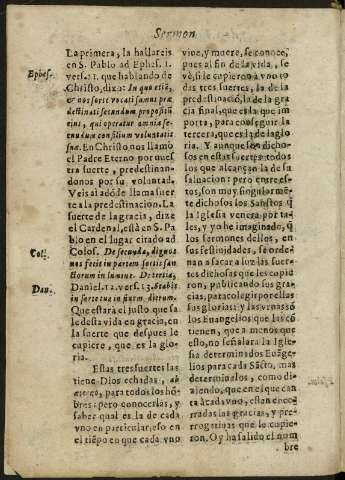 Sermon
La primera, la hallareis
en S. Pablo ad Ephes. 1.
vers. 11. que hablando de
Christo, dize: In quo etiã,
& nos sorte vocati sumus præ
destinati secundum propositũ
eius, qui operatur omnia se-
cundum consilium voluntatis
suæ. En Christo nos llamò
el Padre Eterno por nues
tra suerte, predestinan-
donos por su voluntad.
Veis aì adõ se llama suer
te a la predestinacion. La
suerte de la gracia, dize
el Cardenal, està en S. Pa
blo en el lugar citado ad
Colos. De secũda, dignos
nos fecit in partem sortis san
ctorum in lumine. De tertia,
Daniel. 12. vers. 13. Stabis
in sorte tua in finem dierum.
Que estarà el justo que sa
le desta vida en gracia, en
la suerte que despues le
cupiere, que es la glo-
ria.
Estas tres suertes las
tiene Dios echadas, ab
æterno, para todos los hõ
bres: pero conocerlas, y
saber qual es la de cada
vno en particular, eso en
el tiẽpo en que cada vno
Ephes.
Col.
Dan.
viue, y muere, se conoce,
pues al fin de la vida, se
vè, si le cupieron a vno to
das tres suertes, la de la
predestinaciõ, la de la gra
cia final, que es la que im
porta, para conseguir la
tercera, que es la de la glo
ria. Y aunque son dicho-
sos en estas suertes todos
los que alcançan la de su
saluacion: pero entre es-
tos, son muy singularmẽ
te dichosos los Sanctos q̃
la Iglesia venera por ta-
les, y yo he imaginado, q̃
los sermones dellos, en
sus festiuidades, se orde-
nan a sacar a luz las suer-
tes dichosas que les cupie
ron, publicando sus gra-
cias, para colegir por ellas
sus glorias: y las vnas sõ
los Euangelios que les cõ
tienen, que a menos que
esto, no señalara la Igle
sia determinados Euãge-
lios para cada Sãcto, mas
determinalos, como di-
ziendo, que en el que can
ta a cada vno, estan encer-
radas las gracias, y pre-
rrogatiuas que le cupie-
ron. Oy ha salido el nom
bre